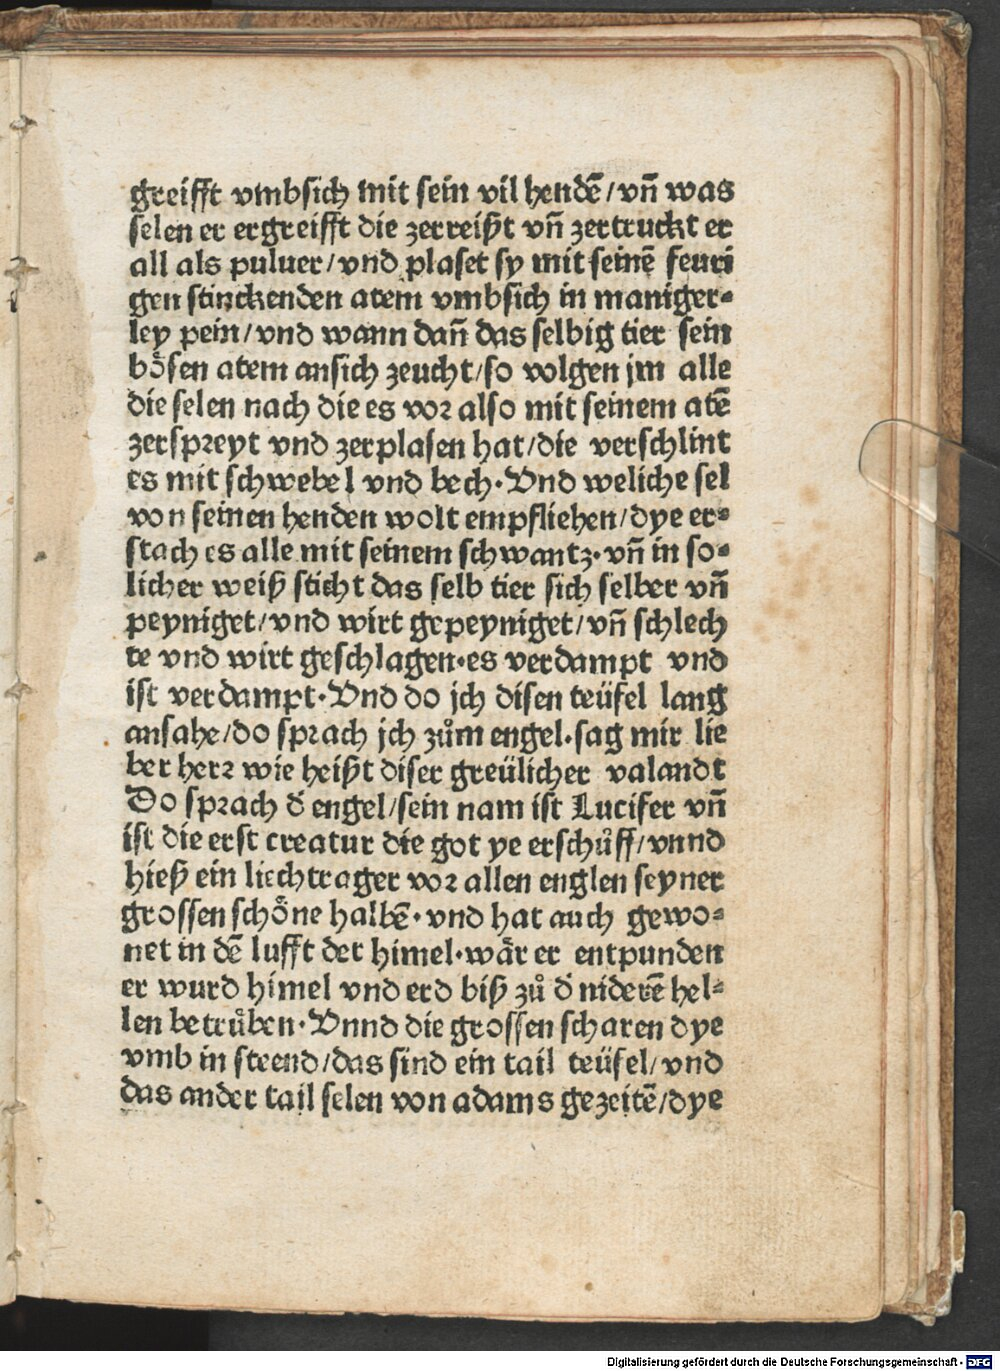 greifft vmbsich mit sein vil hendē/vn̄ was
selen er ergreifft die zerreißt vn̄ zertruckt er
all als puluer/vnd plaset sy mit seinē feuri
gen stinckenden atem vmbsich in maniger⸗
ley pein/vnd wann dan̄ das selbig tier sein
bösen atem ansich zeucht/so volgen jm alle
die selen nach die es vor also mit seinem atē
zerspreyt vnd zerplasen hat/die verschlint
es mit schwebel vnd bech·Vnd weliche sel
von seinen henden wolt empfliehen/dye er⸗
stach es alle mit seinem schwantz·vn̄ in so⸗
licher weiß sticht das selb tier sich selber vn̄
peyniget/vnd wirt gepeyniget/vn̄ schlech
te vnd wirt geschlagen·es verdampt vnd
ist verdampt·Vnd do jch disen teüfel lang
ansahe/do sprach jch zům engel·sag mir lie
ber herr wie heißt diser greülicher valandt
Do sprach d̄ engel/sein nam ist Lucifer vn̄
ist die erst creatur die got ye erschůff/vnnd
hieß ein liechtrager vor allen englen seyner
grossen schöne halbē·vnd hat auch gewo⸗
net in dē lufft der himel·wär er entpunden
er wurd himel vnd erd biß zů d̄ niderē hel⸗
len betrůben·Vnnd die grossen scharen dye
vmb in steend/das sind ein tail teüfel/vnd
das ander tail selen von adams gezeitē/dye
Digitalisierung gefördert durch die Deutsche Forschungsgemeinschaft - DFG